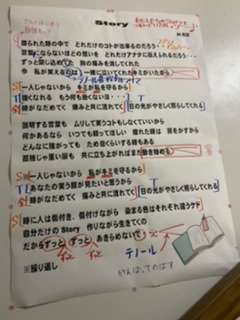 Story
限られた時の中で どれだけのコトが出来るのだろう…
言葉にならないほどの想いを どれだけアナタに伝えられるだろう…
ずっと閉じ込めてた 胸の痛みを消してくれた
今 私が笑えるのは 一緒に泣いてくれたキミがいたから
一人じゃないから 私がキミを守るから
強くなれる もう何も恐くないヨ…
時がなだめてく 痛みと共に流れてく 日の光がやさしく照らしてくれる
説明する言葉も ムリして笑うコトもしなくていいから
何かあるなら いつでも頼ってほしい 疲れた時は 肩をかすから
どんなに強がっても ため息くらいする時もある
孤独じゃ重い扉も 共に立ち上がればまた動き始める
一人じゃないから 私がキミを守るから
あなたの笑う顔が見たいと思うから
時がなだめてく 痛みと共に流れてく 日の光がやさしく照らしてくれる
時に人は傷付き、傷付けながら 染まる色はそれぞれ違うケド
自分だけのStory 作りながら生きてくの
だからずっと ずっと あきらめないで
テノール
※繰り返し